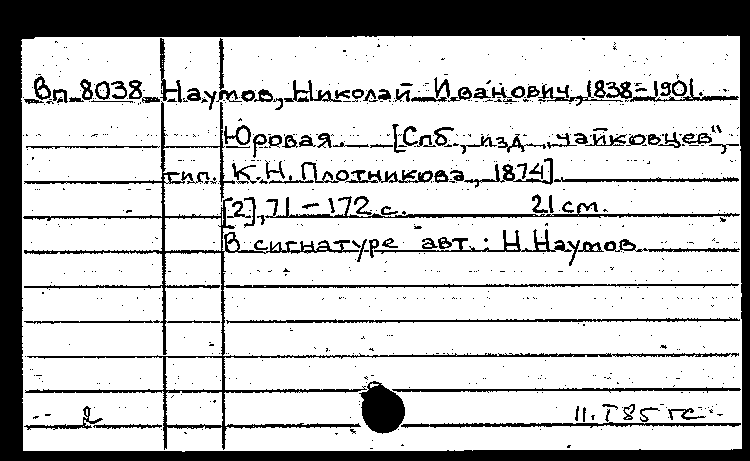 Вп 8038 Наумов, Николай Иванович, 1838-1901.
Юровая. [Спб., изд. „чайковцев",
тип. К.Н. Плотникова, 1874].
[2], 71-172 с. 21 см.
В сигнатуре авт.: Н. Наумов
2 11.I 85 гс